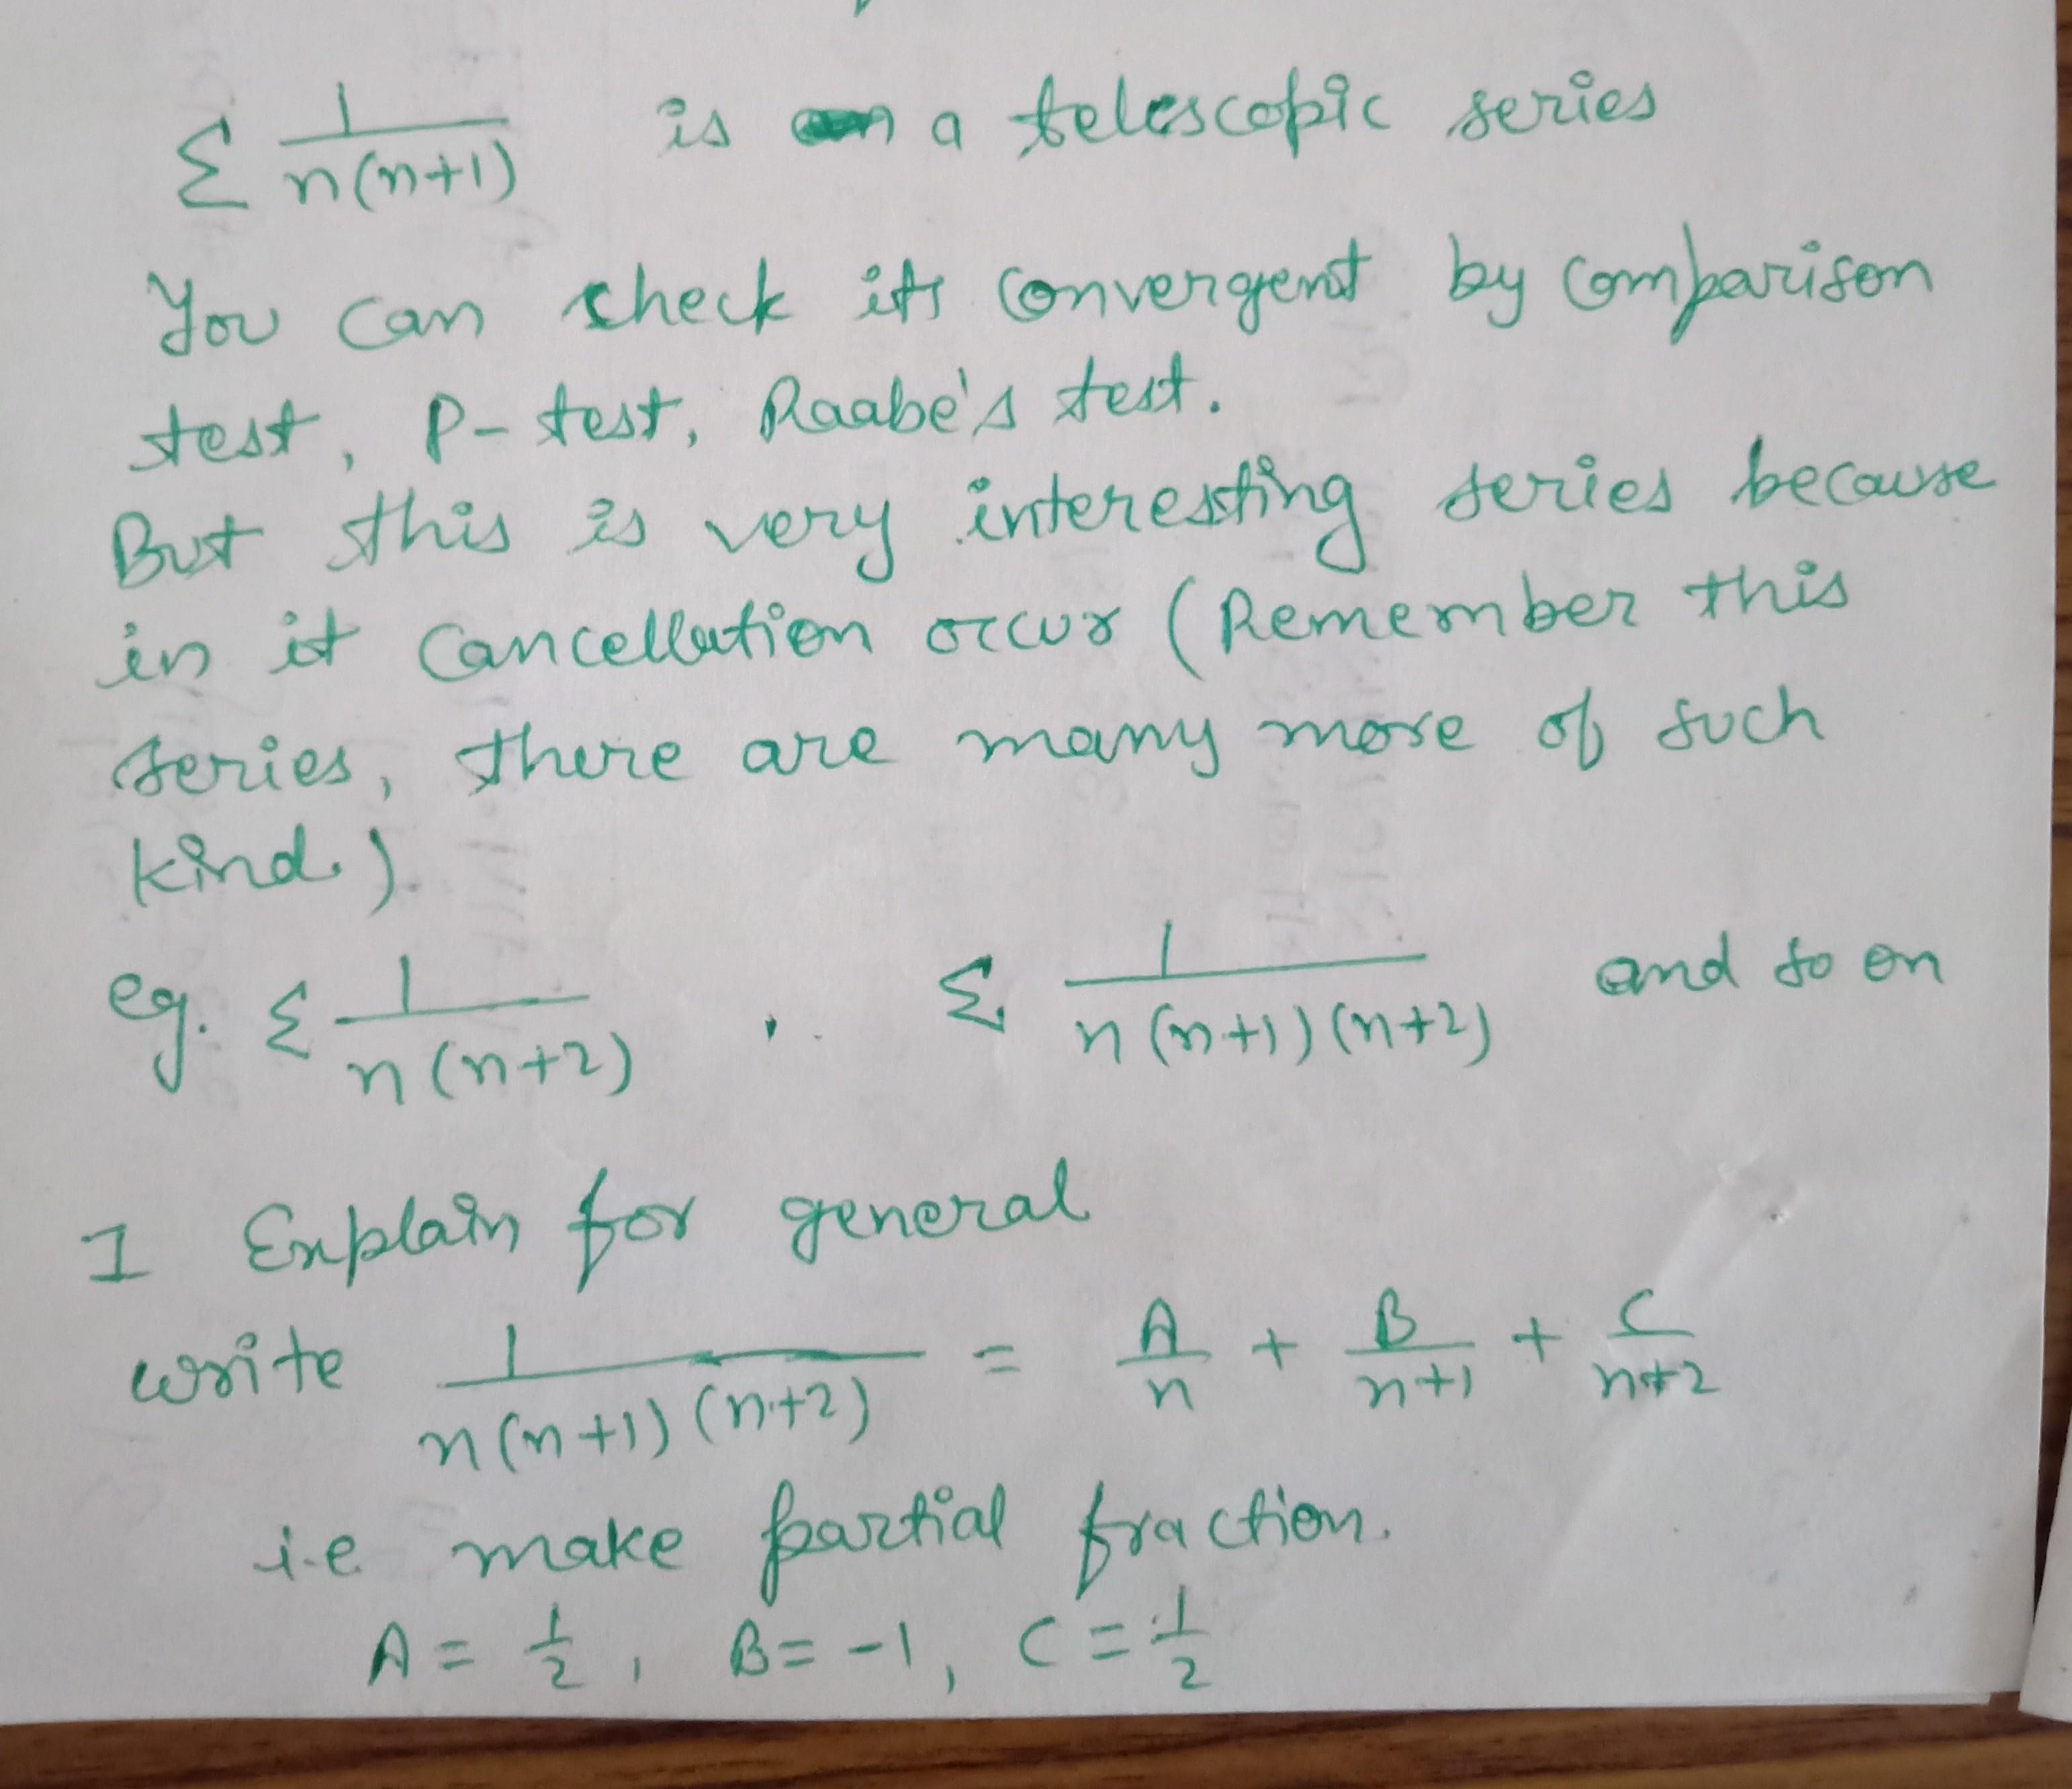 Σ 1/(n(n+1)) is a telescopic series
You can check its convergent by comparison
test, P-test, Raabe's test.
But this is very interesting series because
in it cancellation occur (Remember this
series, there are many more of such
kind.)
eg. Σ 1/(n(n+2)) , Σ 1/(n(n+1)(n+2)) and so on
I Explain for general
write 1/(n(n+1)(n+2)) = A/n + B/(n+1) + C/(n+2)
i.e make partial fraction.
A = 1/2, B = -1, C = 1/2